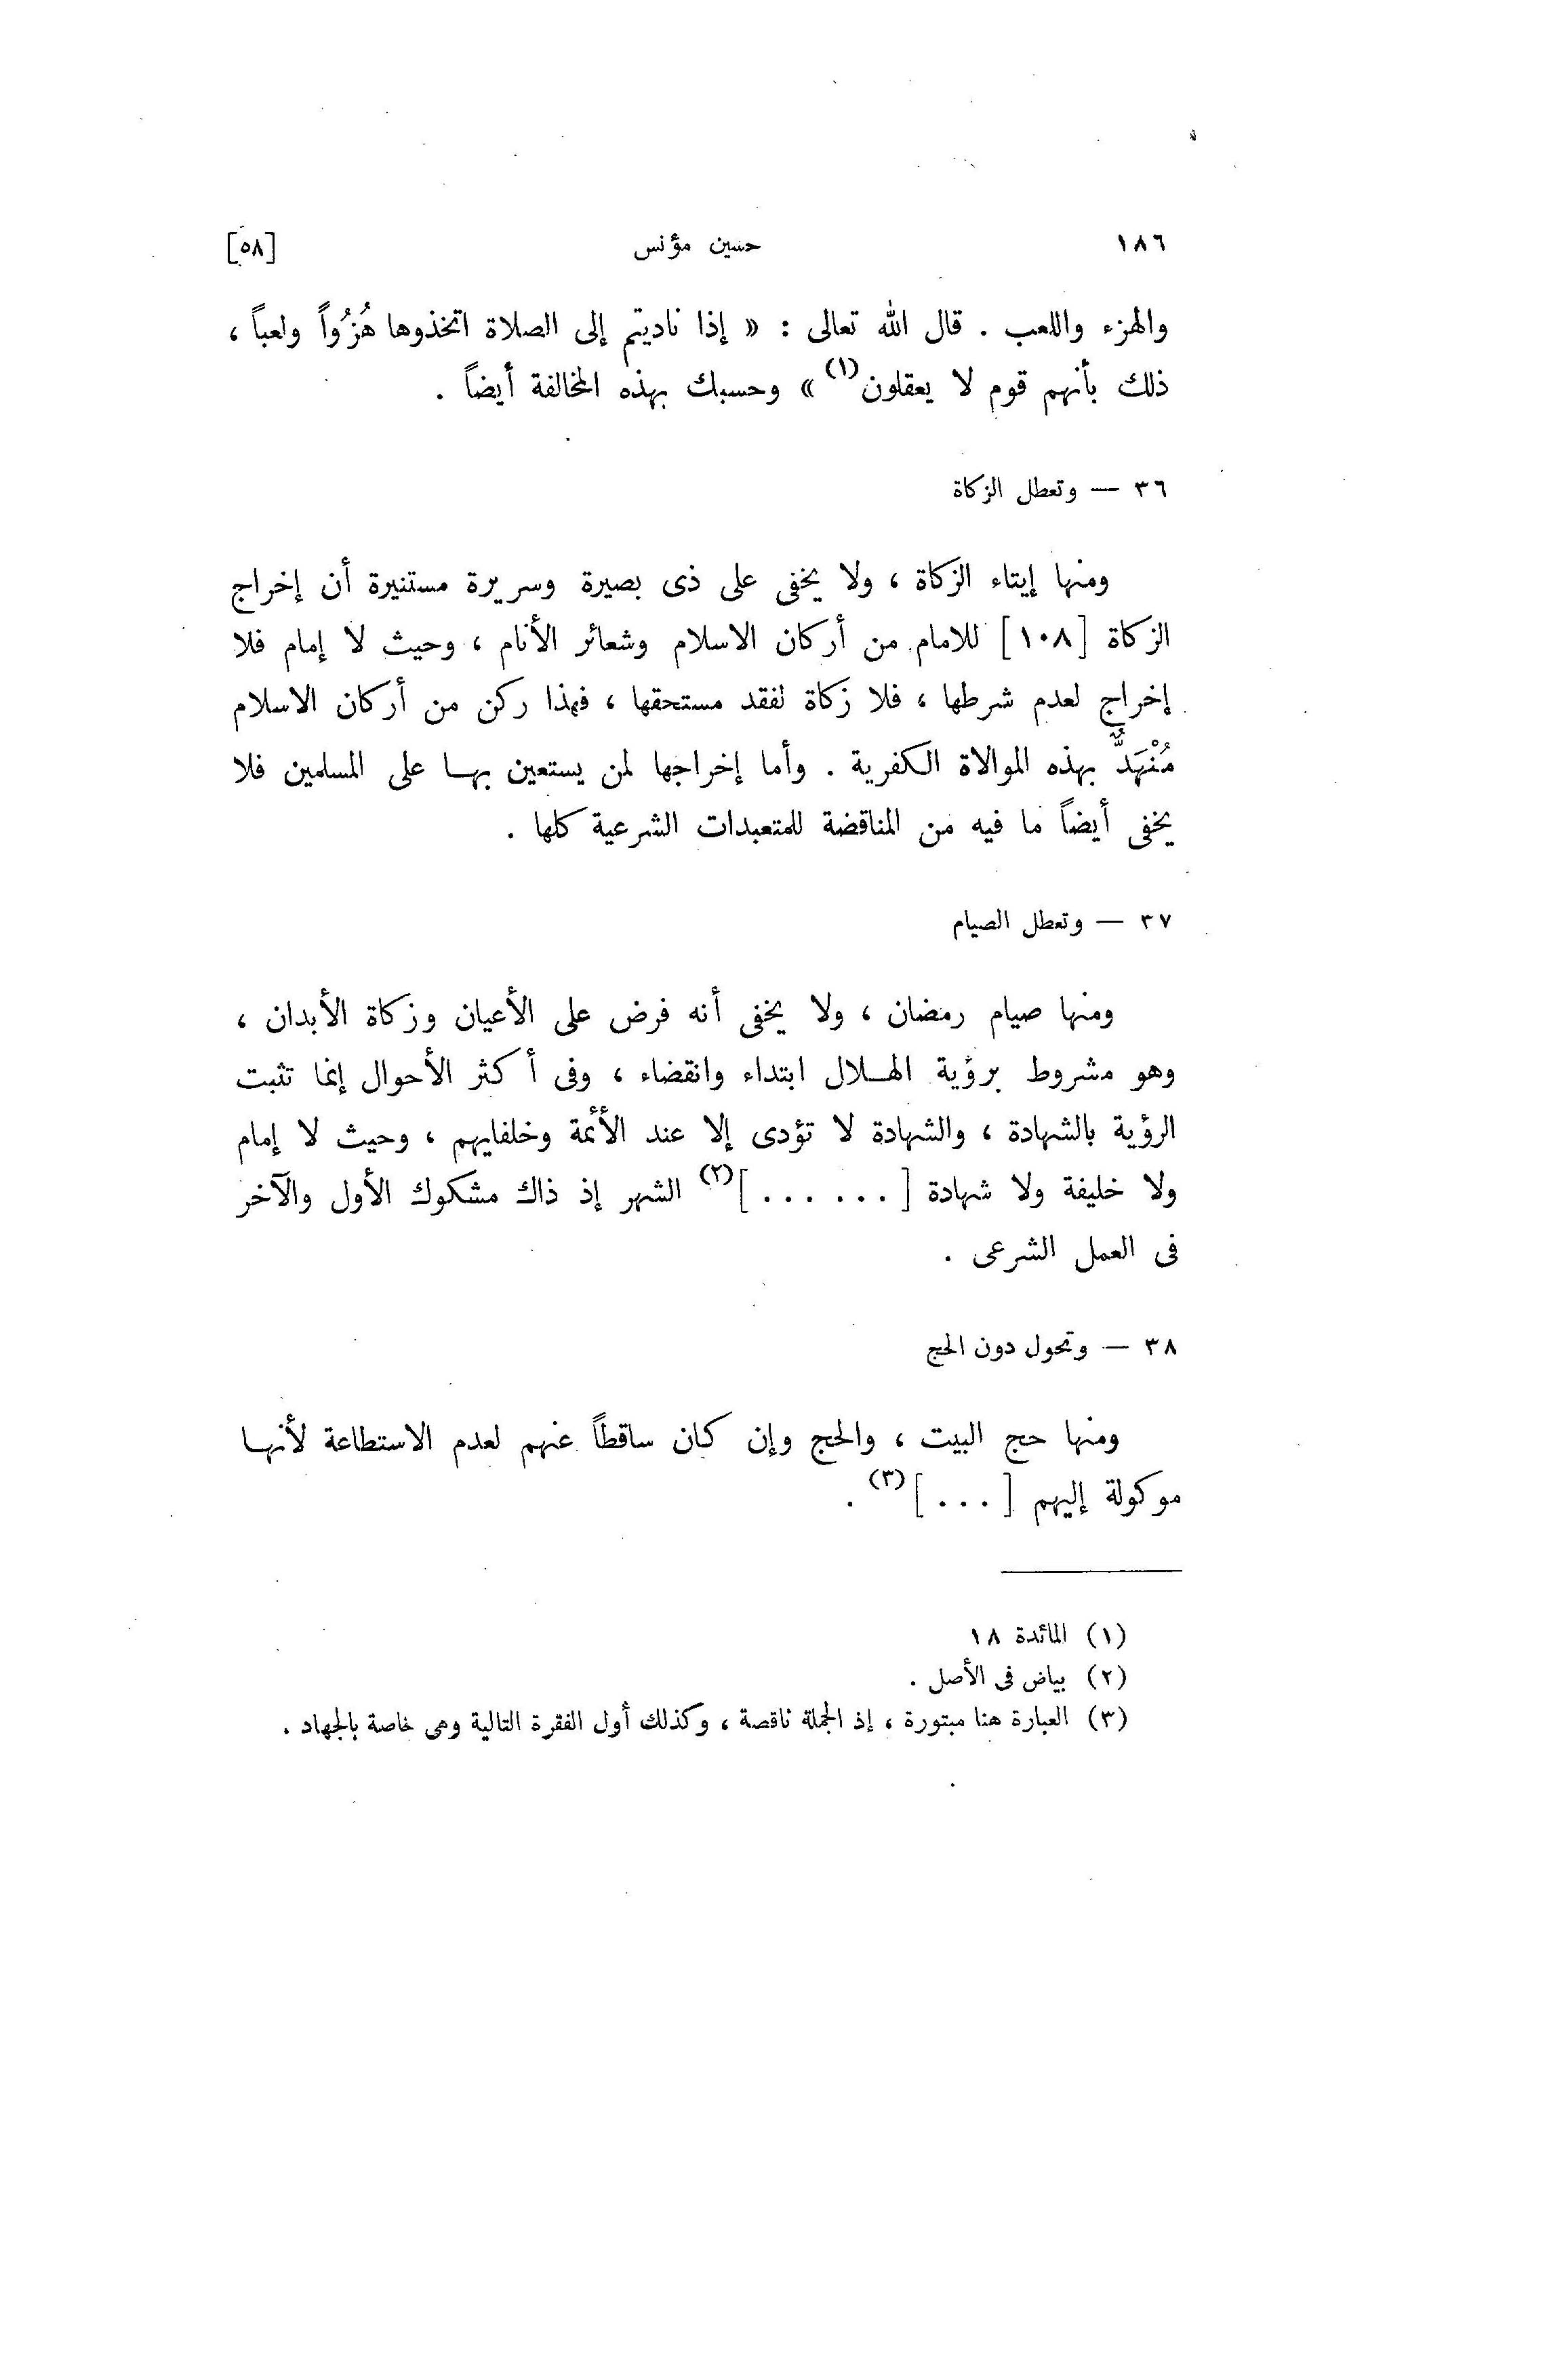 ١٨٦ حسين مؤنس [٥٨]
والهزء واللعب . قال الله تعالى : « إذا ناديتم إلى الصلاة اتخذوها هُزُواً ولعباً ،
ذلك بأنهم قوم لا يعقلون(١) » وحسبك بهذه المخالفة أيضاً .
٣٦ — وتعطل الزكاة
ومنها إيتاء الزكاة ، ولا يخفى على ذى بصيرة وسريرة مستنيرة أن إخراج
الزكاة [١٠٨] للامام من أركان الاسلام وشعائر الأنام ، وحيث لا إمام فلا
إخراج لعدم شرطها ، فلا زكاة لفقد مستحقها ، فهذا ركن من أركان الاسلام
مُنْهَدٌّ بهذه الموالاة الكفرية . وأما إخراجها لمن يستعين بهـا على المسلمين فلا
يخفى أيضاً ما فيه من المناقضة للمتعبدات الشرعية كلها .
٣٧ — وتعطل الصيام
ومنها صيام رمضان ، ولا يخفى أنه فرض على الأعيان وزكاة الأبدان ،
وهو مشروط برؤية الهـلال ابتداء وانقضاء ، وفى أكثر الأحوال إنما تثبت
الرؤية بالشهادة ، والشهادة لا تؤدى إلا عند الأئمة وخلفايهم ، وحيث لا إمام
ولا خليفة ولا شهادة [ . . . . . . ](٢) الشهر إذ ذاك مشكوك الأول والآخر
فى العمل الشرعى .
٣٨ — وتحول دون الحج
ومنها حج البيت ، والحج وإن كان ساقطاً عنهم لعدم الاستطاعة لأنهـا
موكولة إليهم [ . . . ](٣) .
(١) المائدة ١٨
(٢) بياض فى الأصل .
(٣) العبارة هنا مبتورة ، إذ الجملة ناقصة ، وكذلك أول الفقرة التالية وهى خاصة بالجهاد .